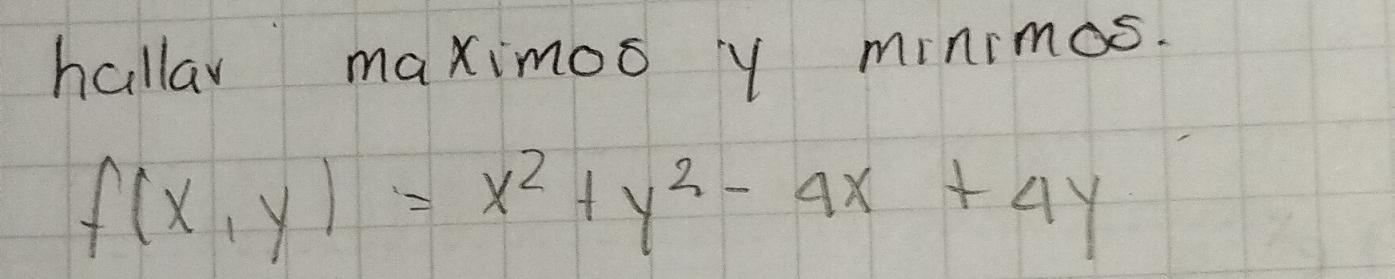 hallar maximos y minimos.
f(x,y) = x² + y² - 4x + 4y